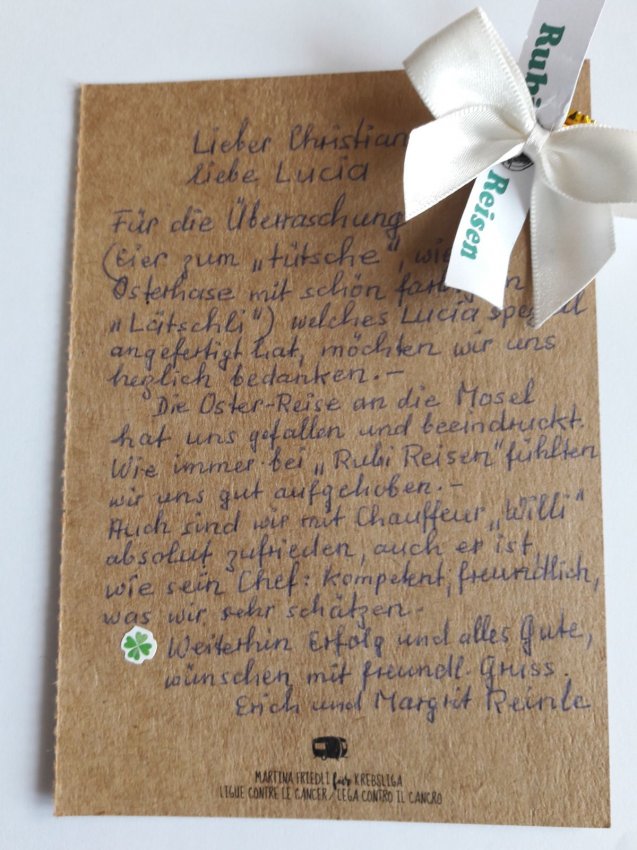 Rubi Reisen
Lieber Christian
liebe Lucia
Für die Überraschung
(Eier zum „tütsche", wie
Osterhase mit schön
„Lätschli") welches Lucia speziell
angefertigt hat, möchten wir uns
herzlich bedanken.-
Die Oster-Reise an die Mosel
hat uns gefallen und beeindruckt.
Wie immer bei „Rubi Reisen" fühlten
wir uns gut aufgehoben.-
Auch sind wir mit Chauffeur „Willi"
absolut zufrieden, auch er ist,
wie sein Chef: kompetent, freundlich,
was wir sehr schätzen.-
Weiterhin Erfolg und alles Gute,
wünschen mit freundl. Gruss.
Erich und Margrit Reinle
MARTINA FRIEDLI für KREBSLIGA
LIGUE CONTRE LE CANCER / LEGA CONTRO IL CANCRO